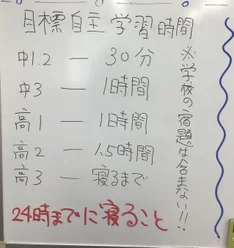 目標自主学習時間
中1.2 — 30分
中3 — 1時間
高1 — 1時間
高2 — 1.5時間
高3 — 寝るまで
※学校の宿題は含まない!!
24時までに寝ること